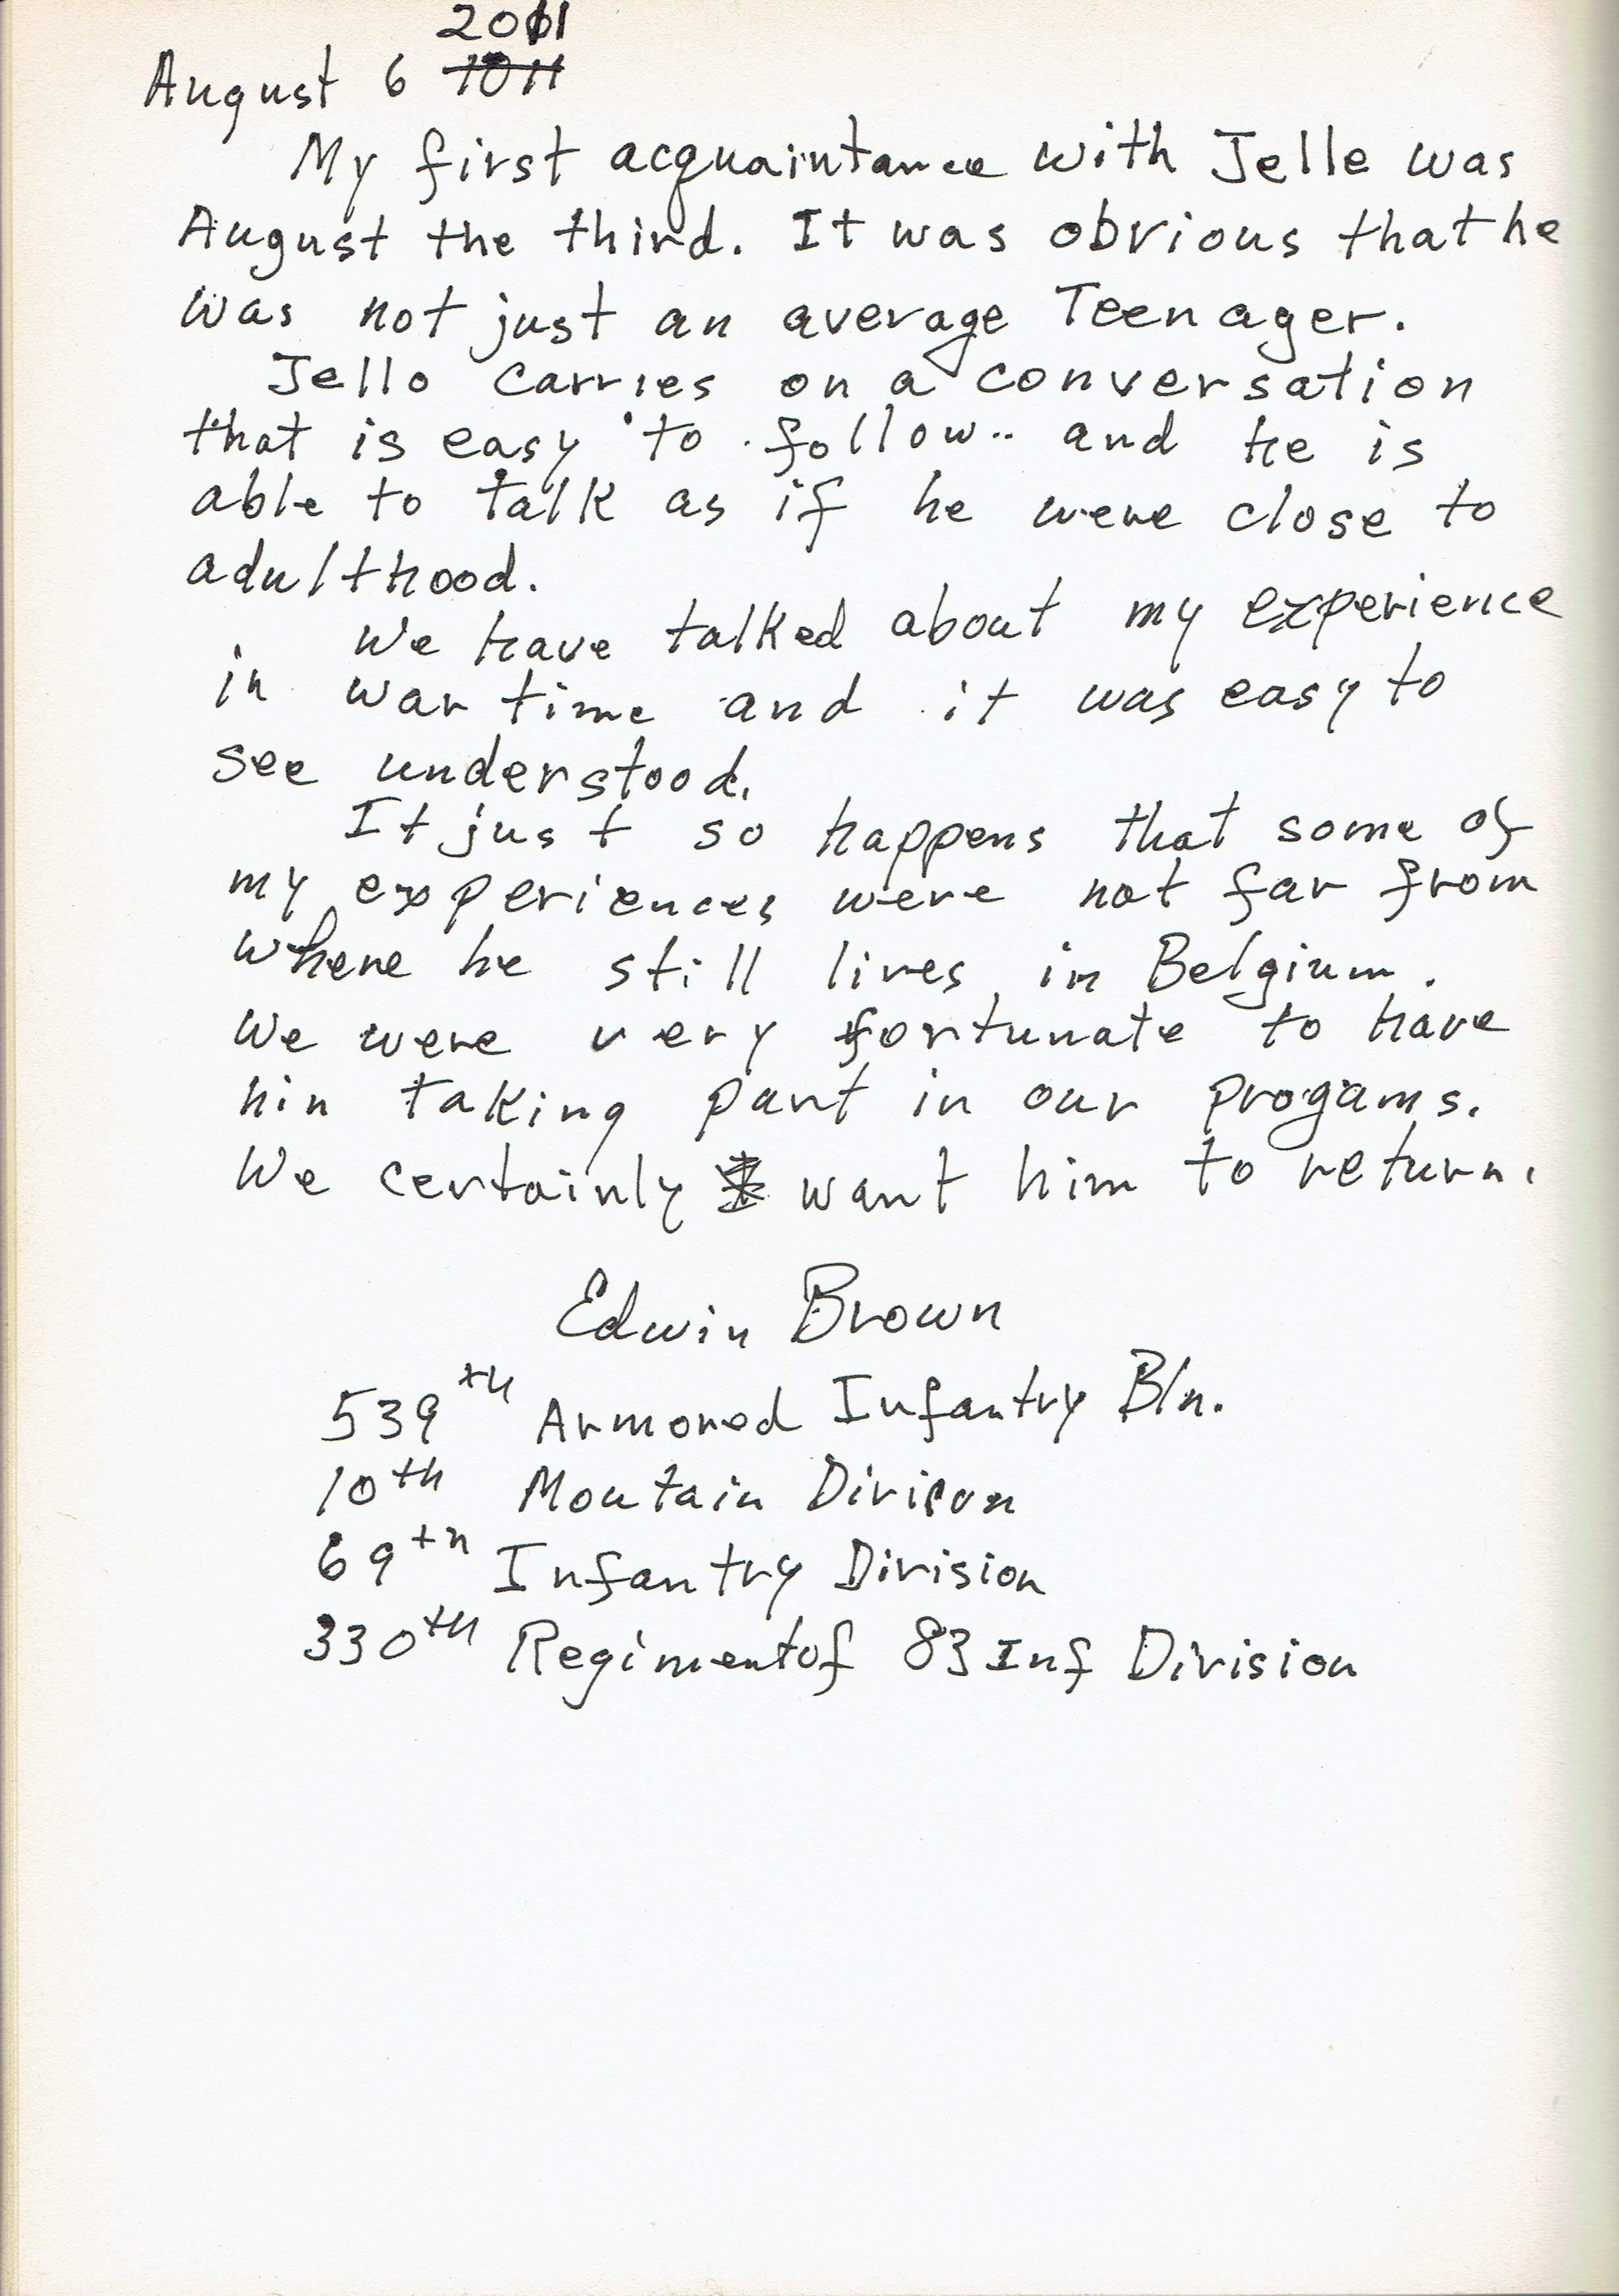 2011
August 6 1011
My first acquaintance with Jelle was
August the third. It was obvious that he
was not just an average Teenager.
Jello carries on a conversation
that is easy to follow.. and he is
able to talk as if he were close to
adulthood.
We have talked about my experience
in war time and it was easy to
see understood.
It just so happens that some of
my experiences were not far from
where he still lives in Belgium.
We were very fortunate to have
hin taking part in our progams.
We certainly I want him to return.
Edwin Brown
539th Armored Infantry Bln.
10th Moutain Divison
69th Infantry Division
330th Regiment of 83 Inf Division